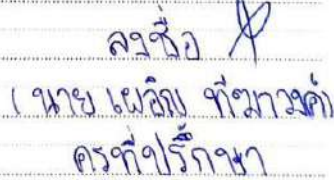 ลงชื่อ
(นาย เผอิญ ทีฆาวงค์)
ครูที่ปรึกษา